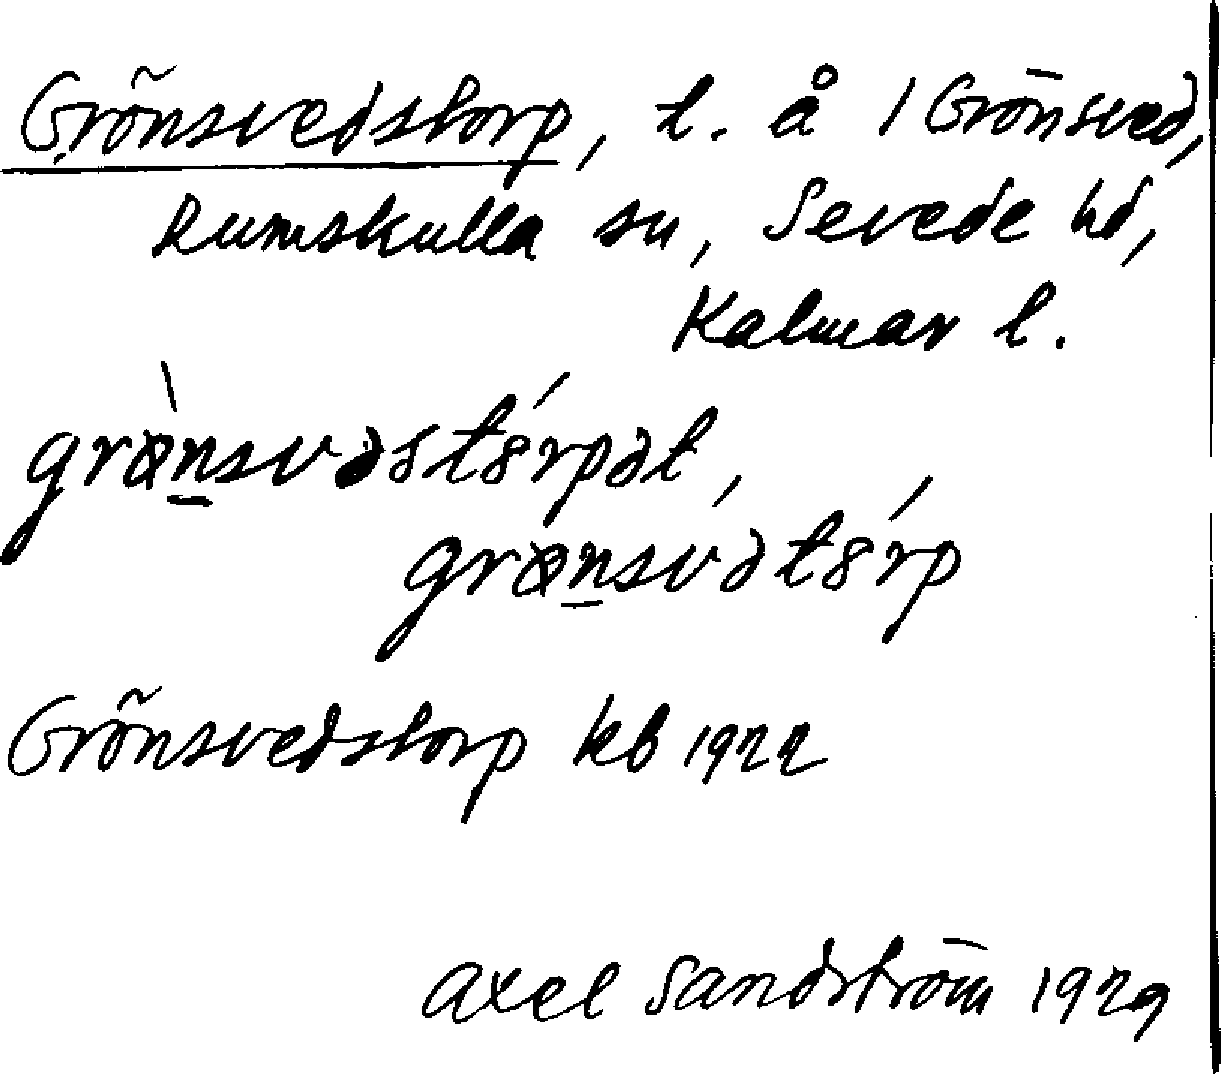 Grönsvedstorp, t. å 1 Grönsved,
Rumskulla sn, Sevede hd,
Kalmar l.
grø̀nsvəstórpət,
grønsvətórp
Grönsvedstorp kb 1922
Axel Sandström 1929